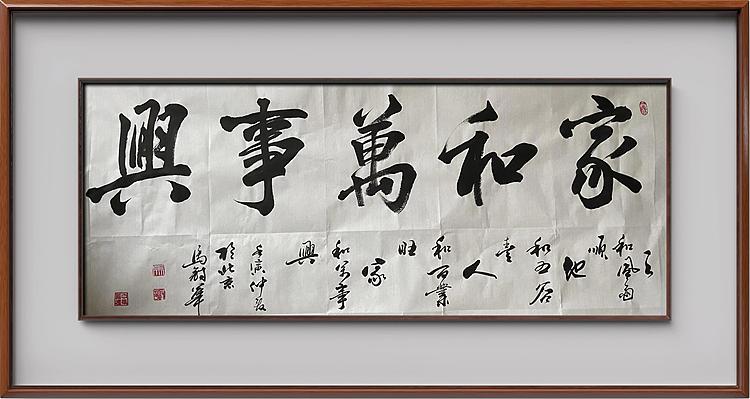 家和萬事興
天
和風雨
順
地
和五谷
豐
人
和百業
旺
家
和万事
興
壬寅仲夏
於北京